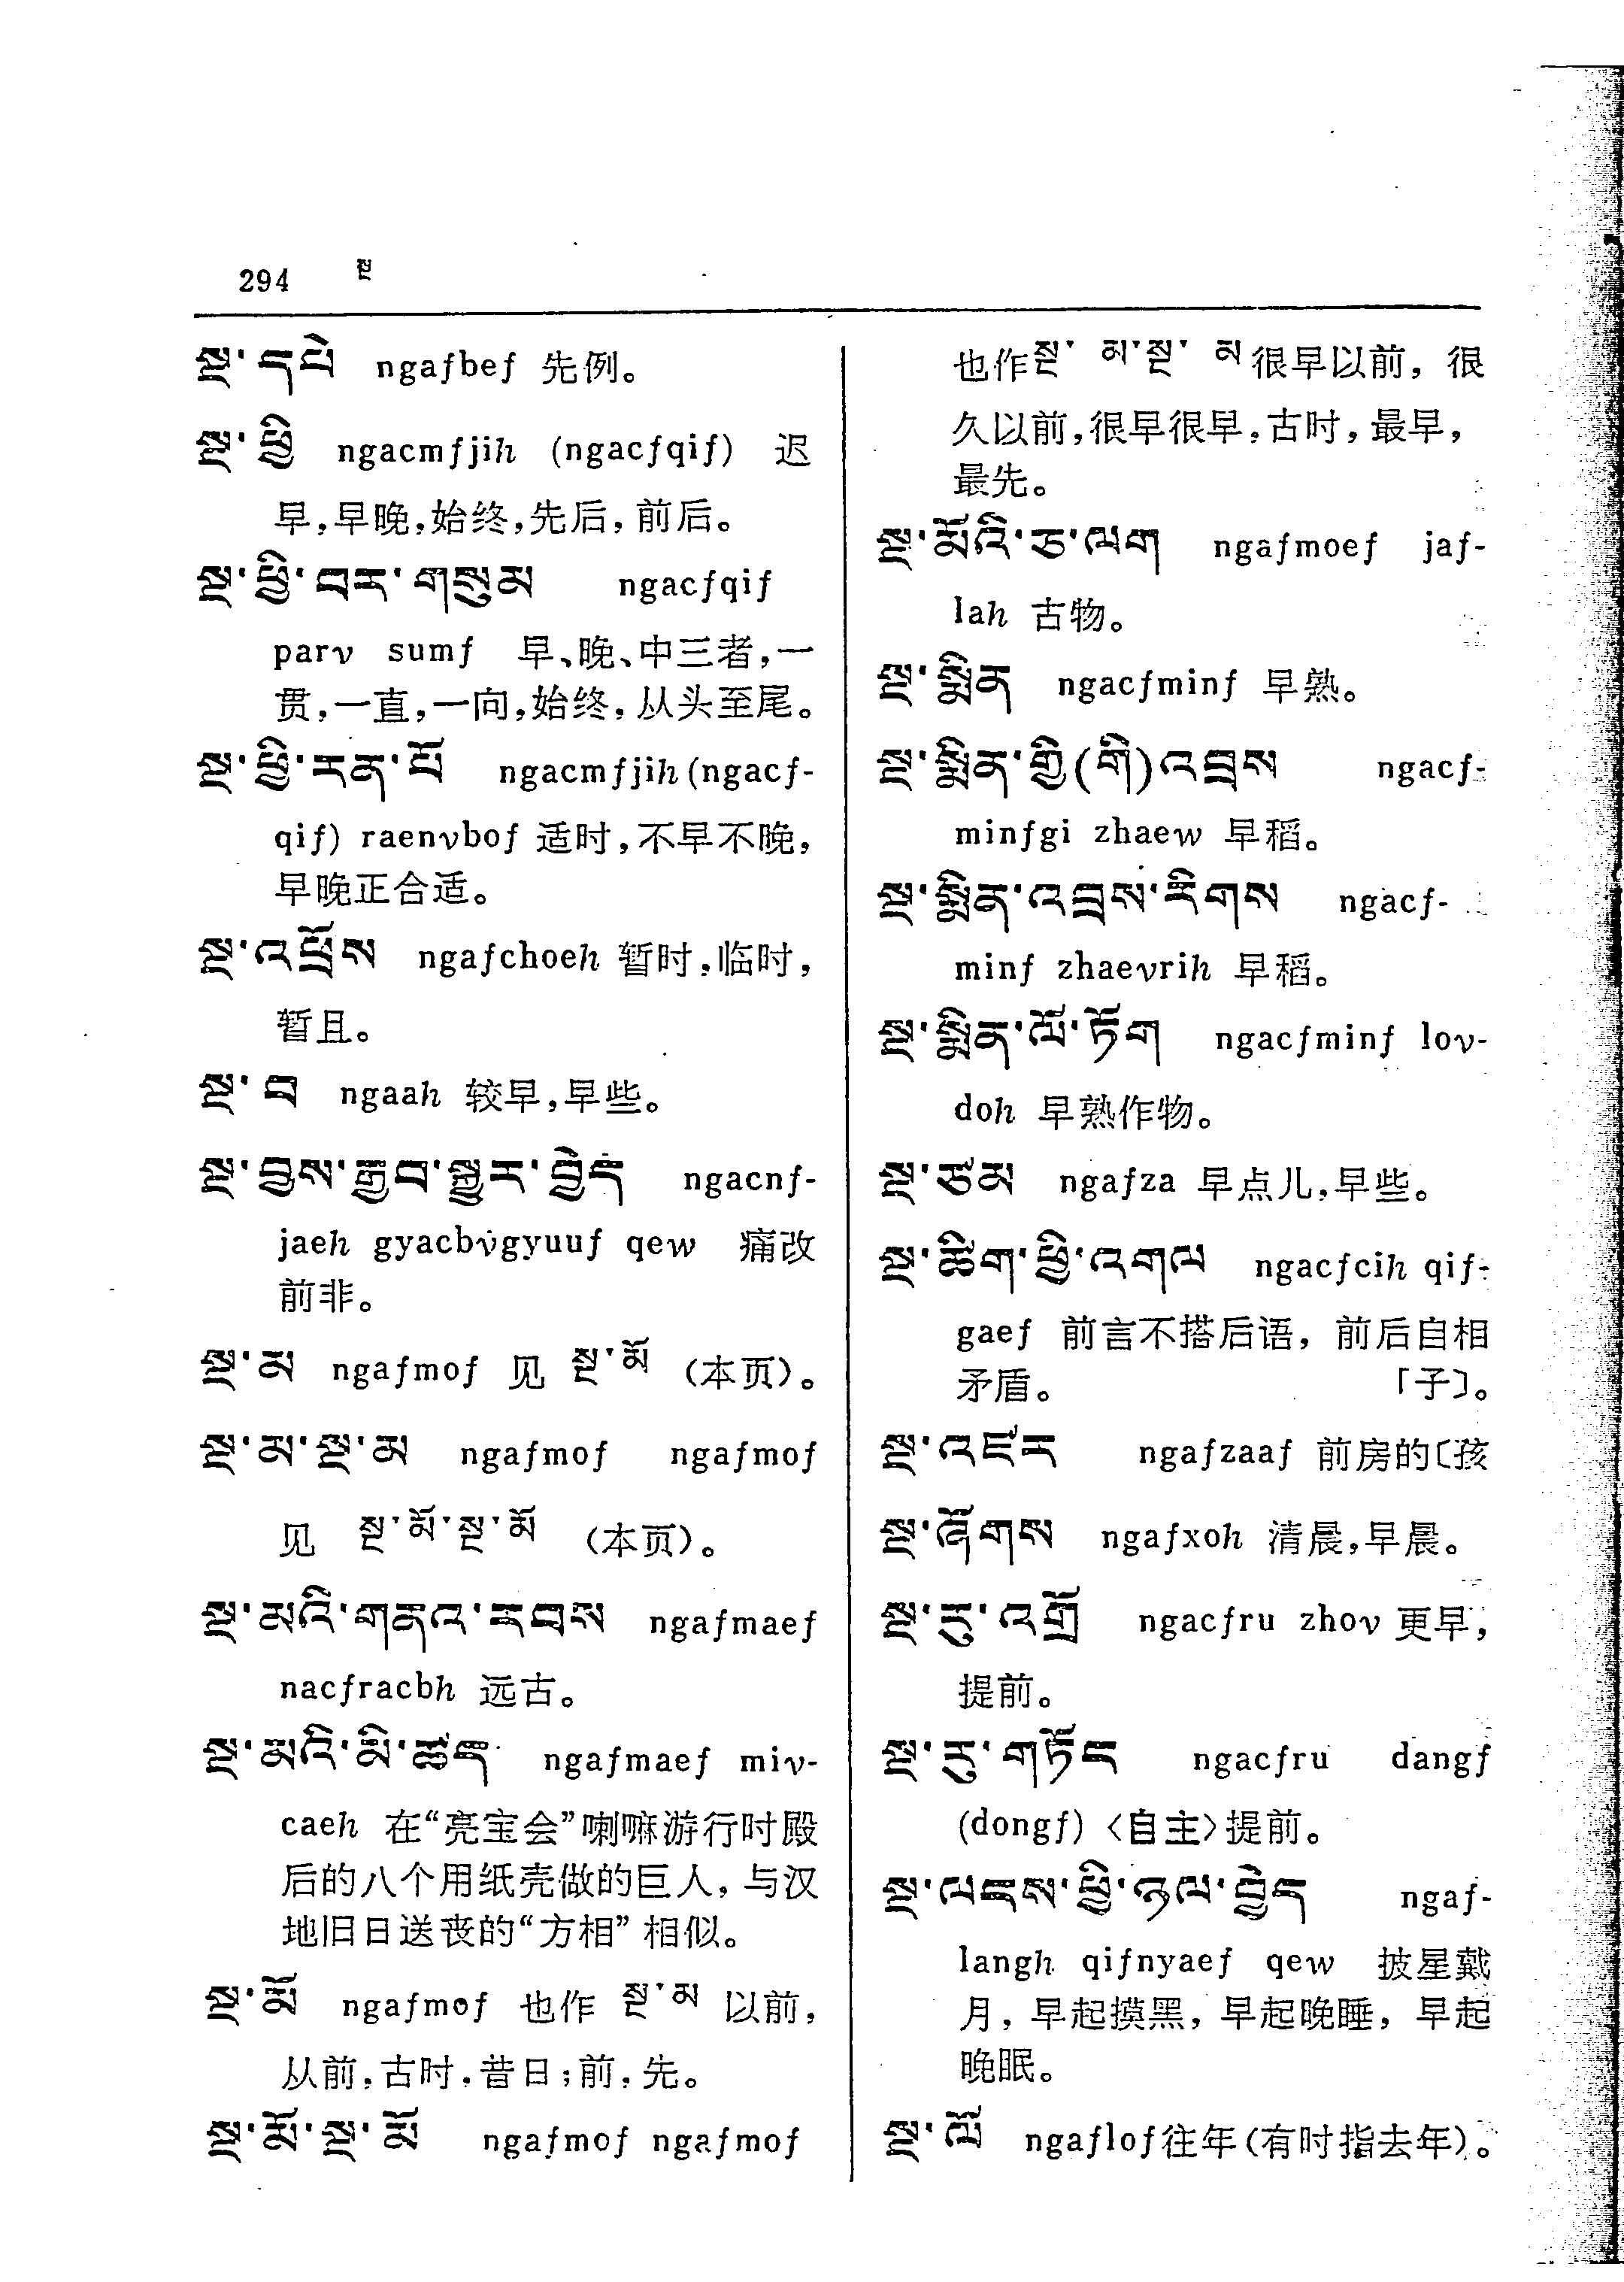 294 སྔ
སྔ་དཔེ ngafbef 先例。
སྔ་ཕྱི ngacmfjih (ngacfqif) 迟
早,早晚,始终,先后,前后。
སྔ་ཕྱི་བར་གསུམ ngacfqif
parv sumf 早、晚、中三者,一
贯,一直,一向,始终,从头至尾。
སྔ་ཕྱི་རན་པོ ngacmfjih(ngacf-
qif) raenvbof 适时,不早不晚,
早晚正合适。
སྔ་འཕྲོས ngafchoeh 暂时,临时,
暂且。
སྔ་བ ngaah 较早,早些。
སྔ་བྱས་རྒྱབ་སྐྱུར་བྱེད ngacnf-
jaeh gyacbvgyuuf qew 痛改
前非。
སྔ་མ ngafmof 见 སྔ་མོ (本页)。
སྔ་མ་སྔ་མ ngafmof ngafmof
见 སྔ་མོ་སྔ་མོ (本页)。
སྔ་མའི་གནའ་རབས ngafmaef
nacfracbh 远古。
སྔ་མའི་མི་ཚད ngafmaef miv-
caeh 在“亮宝会”喇嘛游行时殿
后的八个用纸壳做的巨人,与汉
地旧日送丧的“方相”相似。
སྔ་མོ ngafmof 也作 སྔ་མ 以前,
从前,古时,昔日;前,先。
སྔ་མོ་སྔ་མོ ngafmof ngafmof
也作སྔ་མ་སྔ་མ很早以前,很
久以前,很早很早,古时,最早,
最先。
སྔ་མོའི་ཅ་ལག ngafmoef jaf-
lah 古物。
སྔ་སྨིན ngacfminf 早熟。
སྔ་སྨིན་གྱི(གི)འབྲས ngacf-
minfgi zhaew 早稻。
སྔ་སྨིན་འབྲས་རིགས ngacf-
minf zhaevrih 早稻。
སྔ་སྨིན་ལོ་ཏོག ngacfminf lov-
doh 早熟作物。
སྔ་ཙམ ngafza 早点儿,早些。
སྔ་ཚིག་ཕྱི་འགལ ngacfcih qif-
gaef 前言不搭后语,前后自相
矛盾。 「子〕。
སྔ་འཛར ngafzaaf 前房的〔孩
སྔ་ཞོགས ngafxoh 清晨,早晨。
སྔ་རུ་འགྲོ ngacfru zhov 更早,
提前。
སྔ་རུ་གཏོང ngacfru dangf
(dongf)〈自主〉提前。
སྔ་ལངས་ཕྱི་ཉལ་བྱེད ngaf-
langh qifnyaef qew 披星戴
月,早起摸黑,早起晚睡,早起
晚眠。
སྔ་ལོ ngaflof往年(有时指去年)。